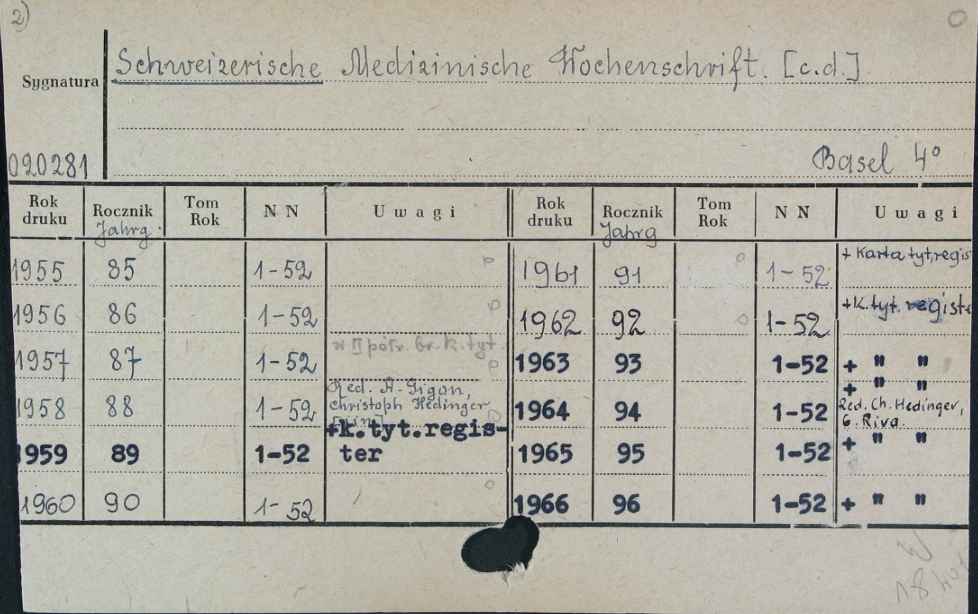 2)
Schweizerische Medizinische Wochenschrift. [c.d.]
Sygnatura
020281
Basel 4°
Rok druku Rocznik Jahrg. Tom Rok NN Uwagi Rok druku Rocznik Jahrg Tom Rok NN Uwagi
1955 85 1-52 p 1961 91 o 1-52 + Karta tyt, regis
1956 86 1-52 p 1962 92 o 1-52 +K. tyt. registe
1957 87 1-52 w II półr. br. k. tyt. p 1963 93 1-52 + " "
1958 88 1-52 Red. A. Gigon, Christoph Hedinger 1964 94 1-52 + " " Red. Ch. Hedinger, G. Riva.
1959 89 1-52 +k.tyt.regis-ter 1965 95 1-52 + " "
1960 90 1-52 o 1966 96 1-52 + " "